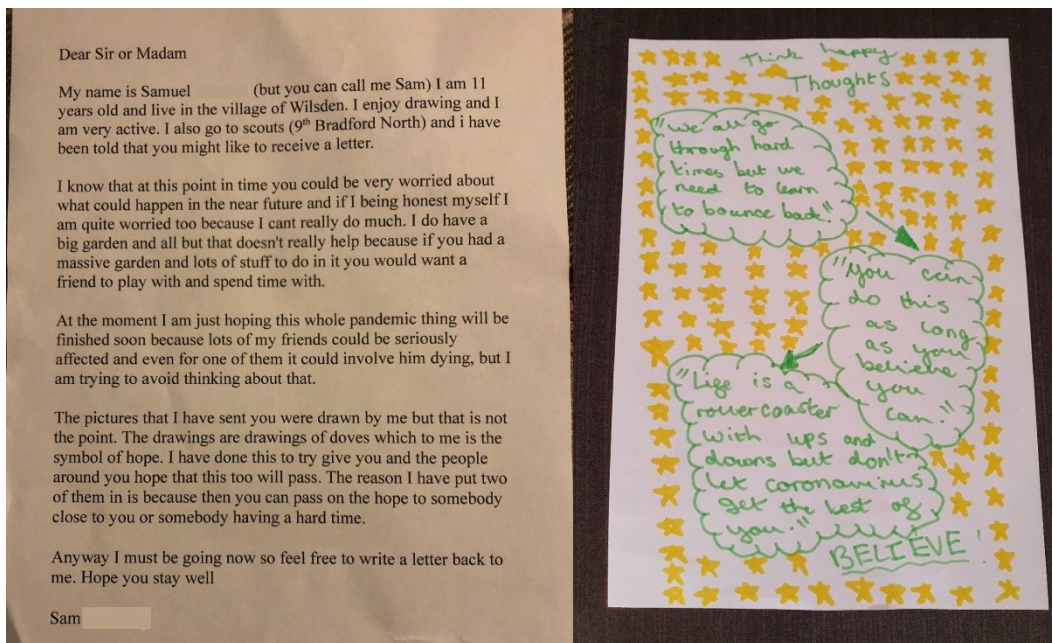 Dear Sir or Madam
My name is Samuel (but you can call me Sam) I am 11
years old and live in the village of Wilsden. I enjoy drawing and I
am very active. I also go to scouts (9th Bradford North) and i have
been told that you might like to receive a letter.
I know that at this point in time you could be very worried about
what could happen in the near future and if I being honest myself I
am quite worried too because I cant really do much. I do have a
big garden and all but that doesn't really help because if you had a
massive garden and lots of stuff to do in it you would want a
friend to play with and spend time with.
At the moment I am just hoping this whole pandemic thing will be
finished soon because lots of my friends could be seriously
affected and even for one of them it could involve him dying, but I
am trying to avoid thinking about that.
The pictures that I have sent you were drawn by me but that is not
the point. The drawings are drawings of doves which to me is the
symbol of hope. I have done this to try give you and the people
around you hope that this too will pass. The reason I have put two
of them in is because then you can pass on the hope to somebody
close to you or somebody having a hard time.
Anyway I must be going now so feel free to write a letter back to
me. Hope you stay well
Sam
Think happy
Thoughts
"We all go
through hard
times but we
need to learn
to bounce back."
"You can
do this
as long
as you
believe
you
can."
"Life is a
rollercoaster
with ups and
downs but don't
let coronavirus
get the best of
you."
BELIEVE!